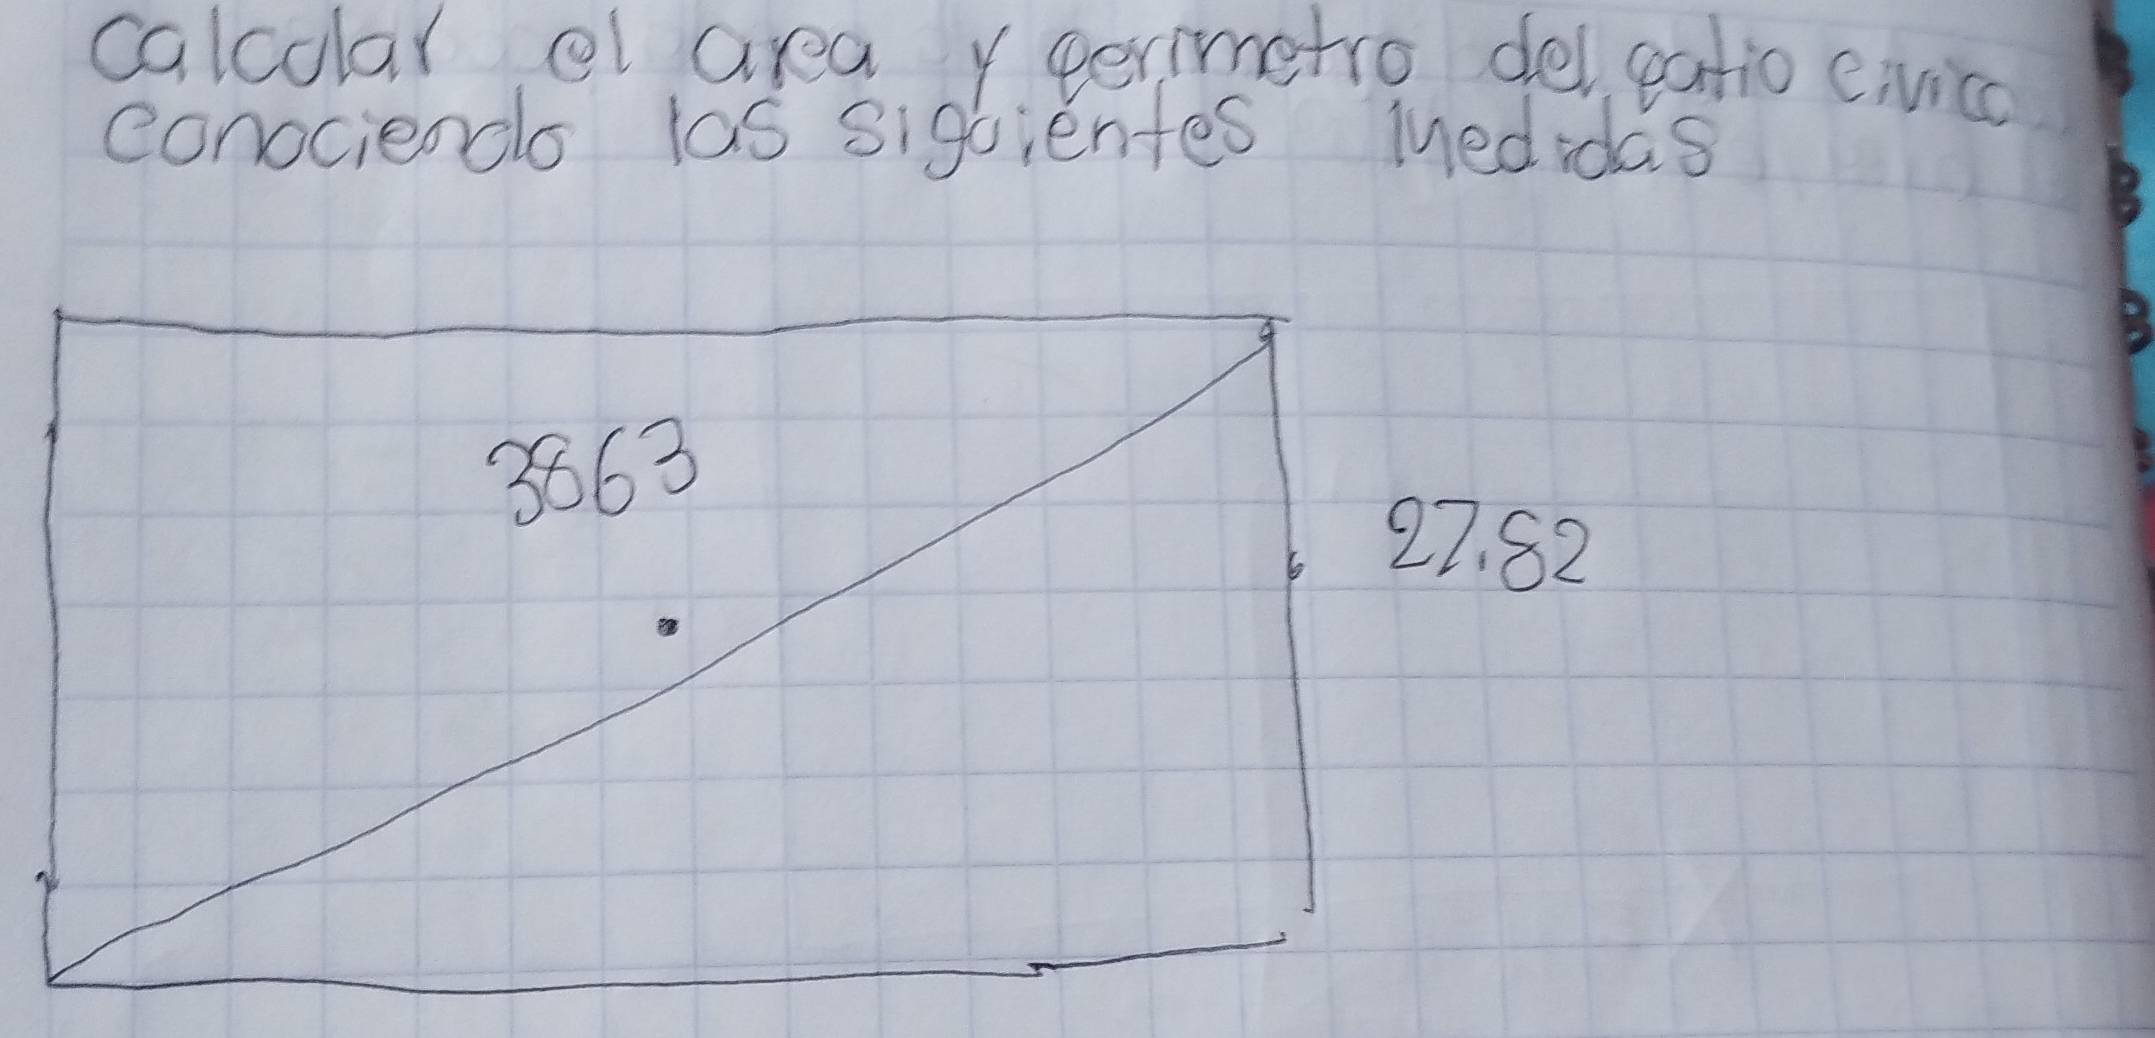 calcular el area y perimetro del patio civico
conociendo las siguientes medidas
3863
27.82